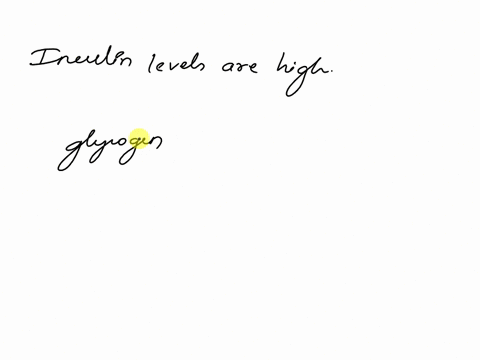 Insulin levels are high.
glycogen